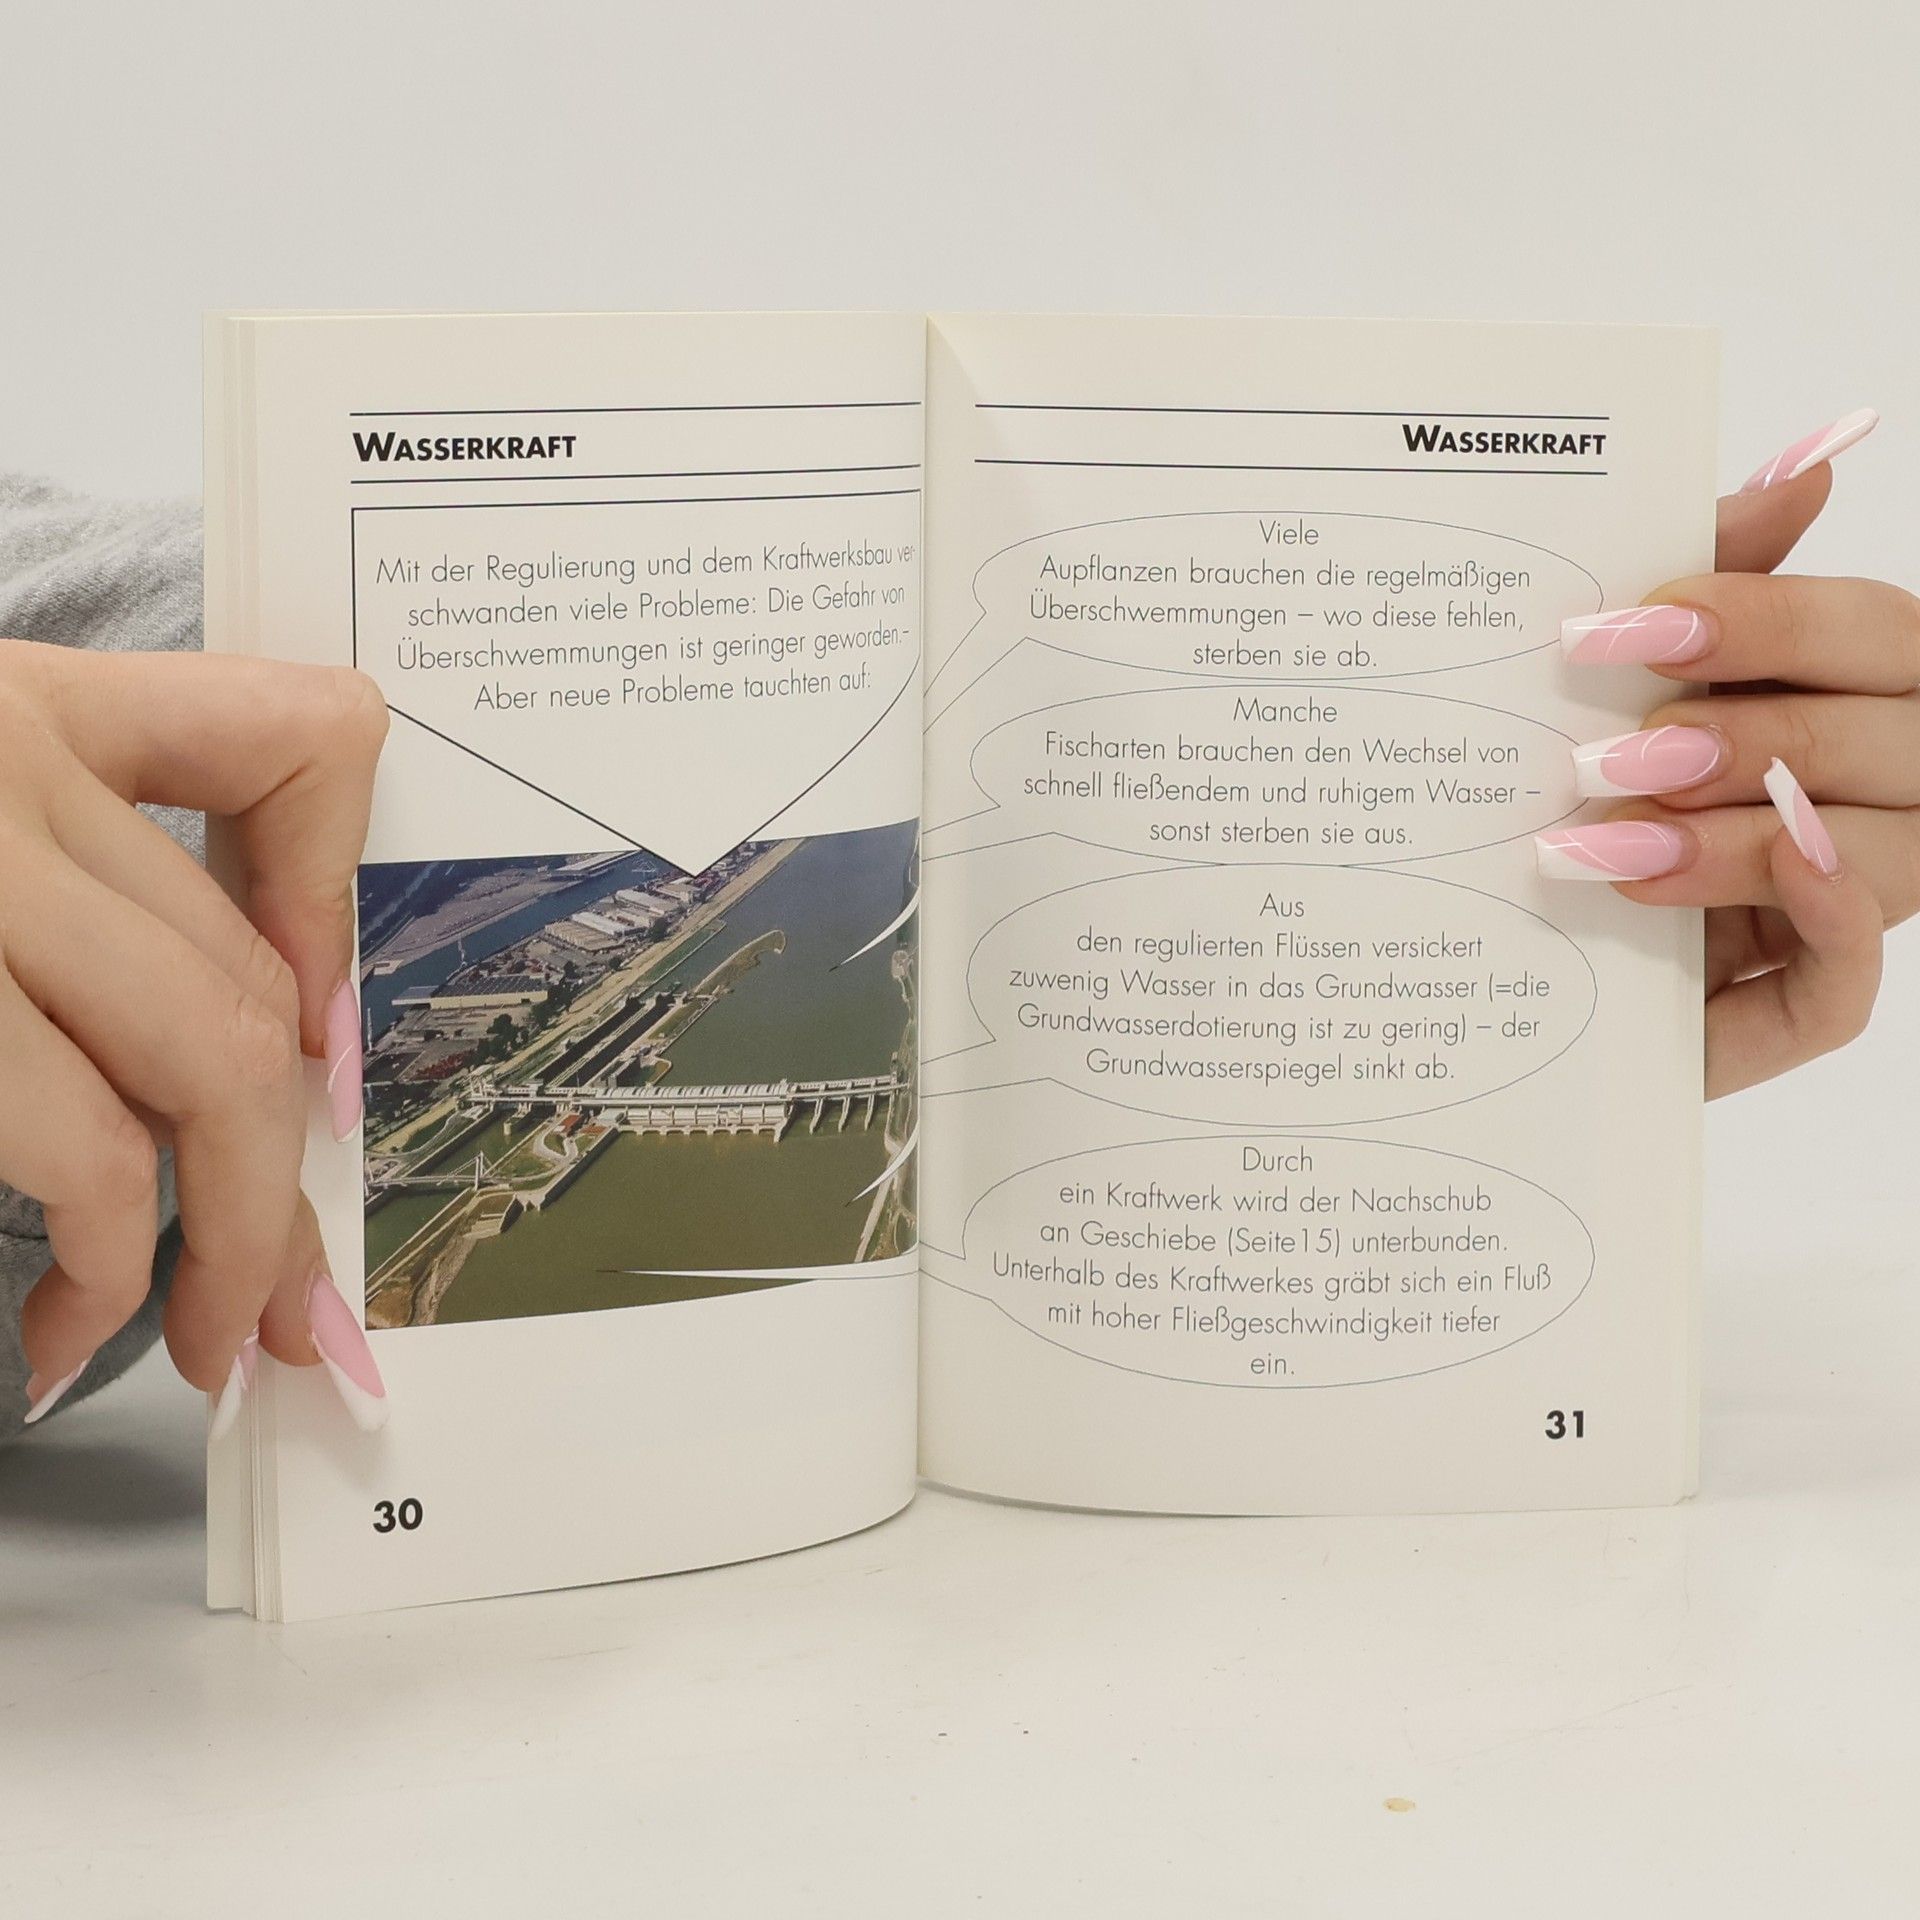 WASSERKRAFT
Mit der Regulierung und dem Kraftwerksbau ver-
schwanden viele Probleme: Die Gefahr von
Überschwemmungen ist geringer geworden.-
Aber neue Probleme tauchten auf:
30
WASSERKRAFT
Viele
Aupflanzen brauchen die regelmäßigen
Überschwemmungen – wo diese fehlen,
sterben sie ab.
Manche
Fischarten brauchen den Wechsel von
schnell fließendem und ruhigem Wasser –
sonst sterben sie aus.
Aus
den regulierten Flüssen versickert
zuwenig Wasser in das Grundwasser (=die
Grundwasserdotierung ist zu gering) – der
Grundwasserspiegel sinkt ab.
Durch
ein Kraftwerk wird der Nachschub
an Geschiebe (Seite15) unterbunden.
Unterhalb des Kraftwerkes gräbt sich ein Fluß
mit hoher Fließgeschwindigkeit tiefer
ein.
31